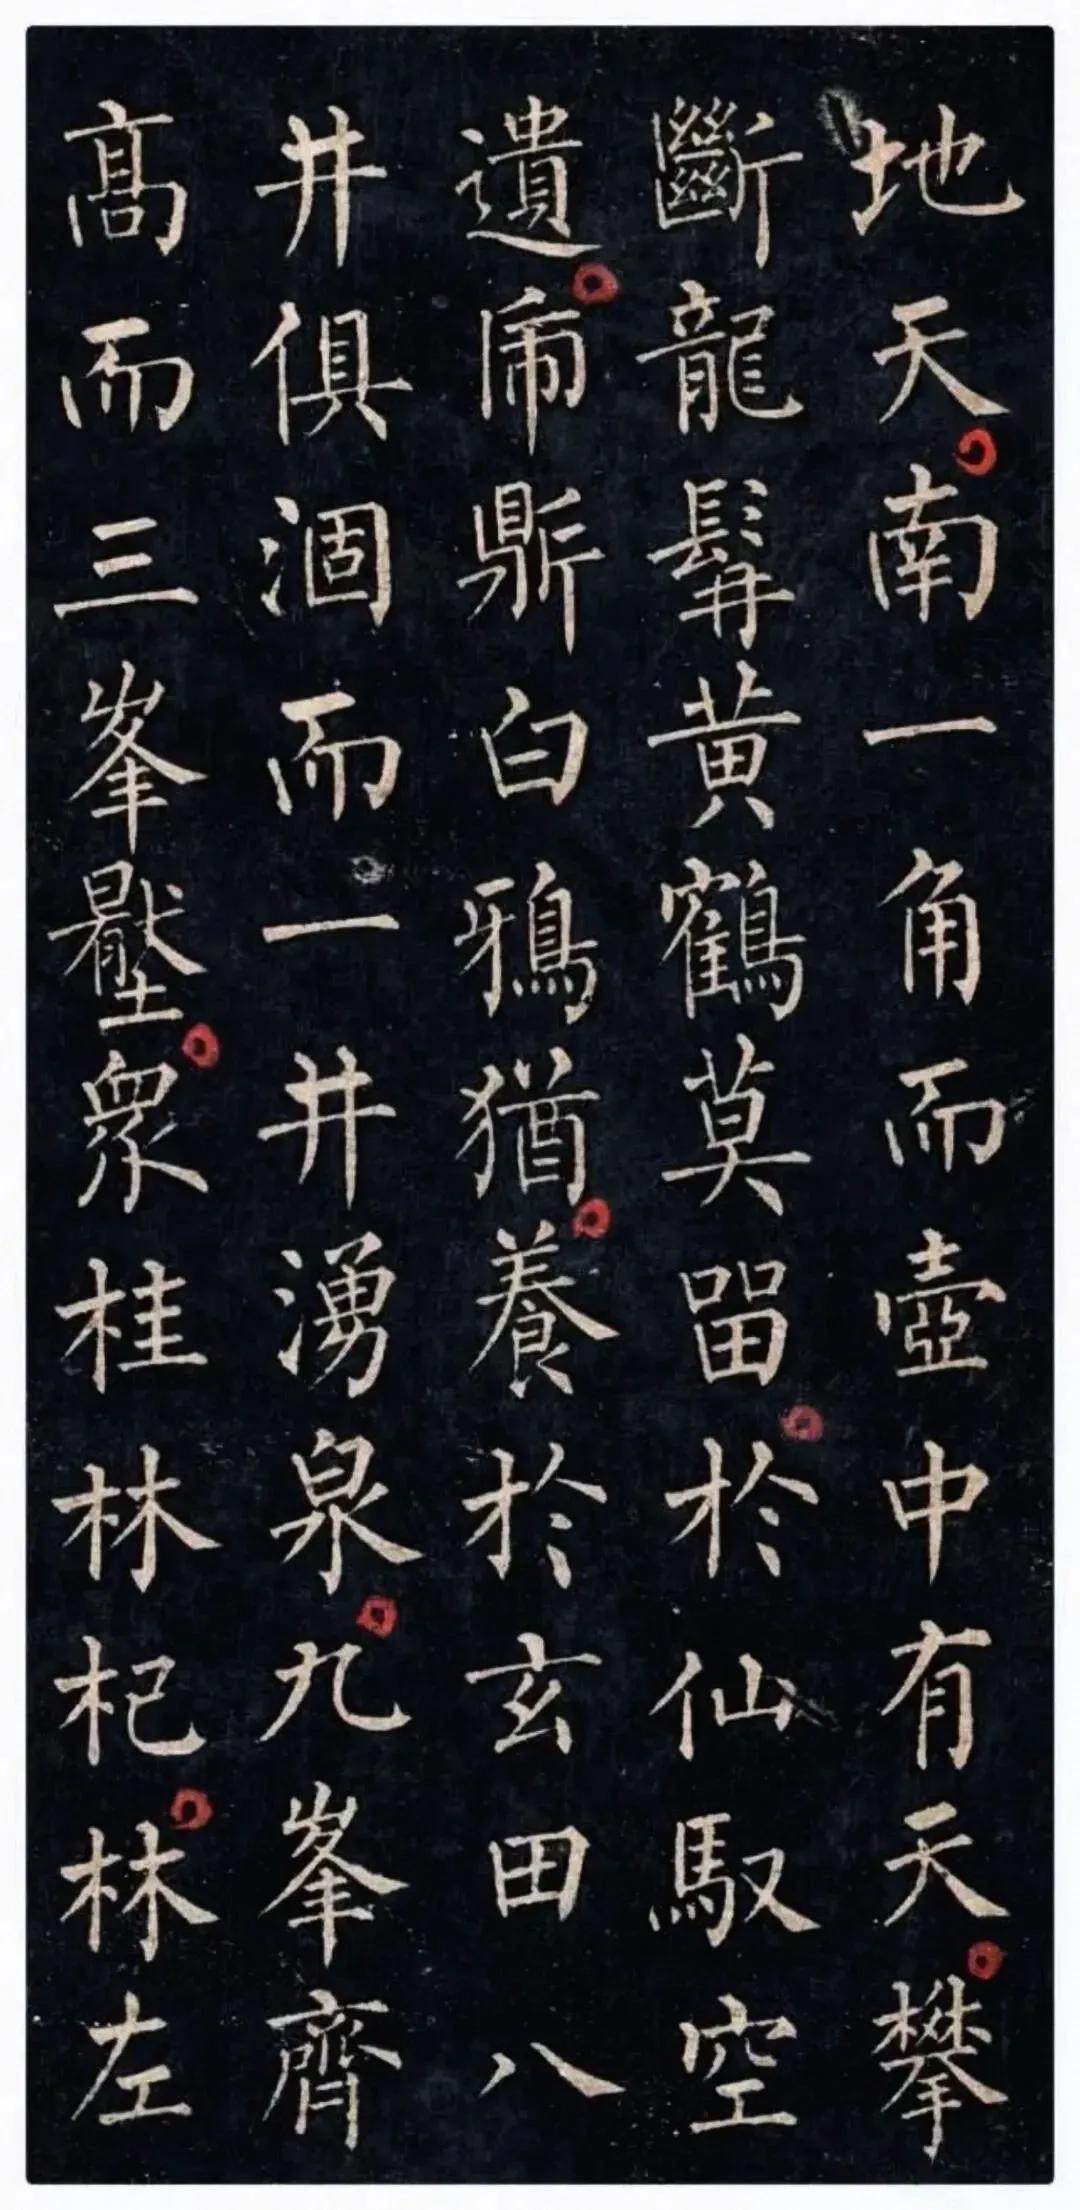 地天南一角而壺中有天攀
斷龍髯黃鶴莫留於仙馭空
遺虎鼎白鴉猶養於玄田八
井俱涸而一井湧泉九峯齊
高而三峯壓眾桂林杞林左